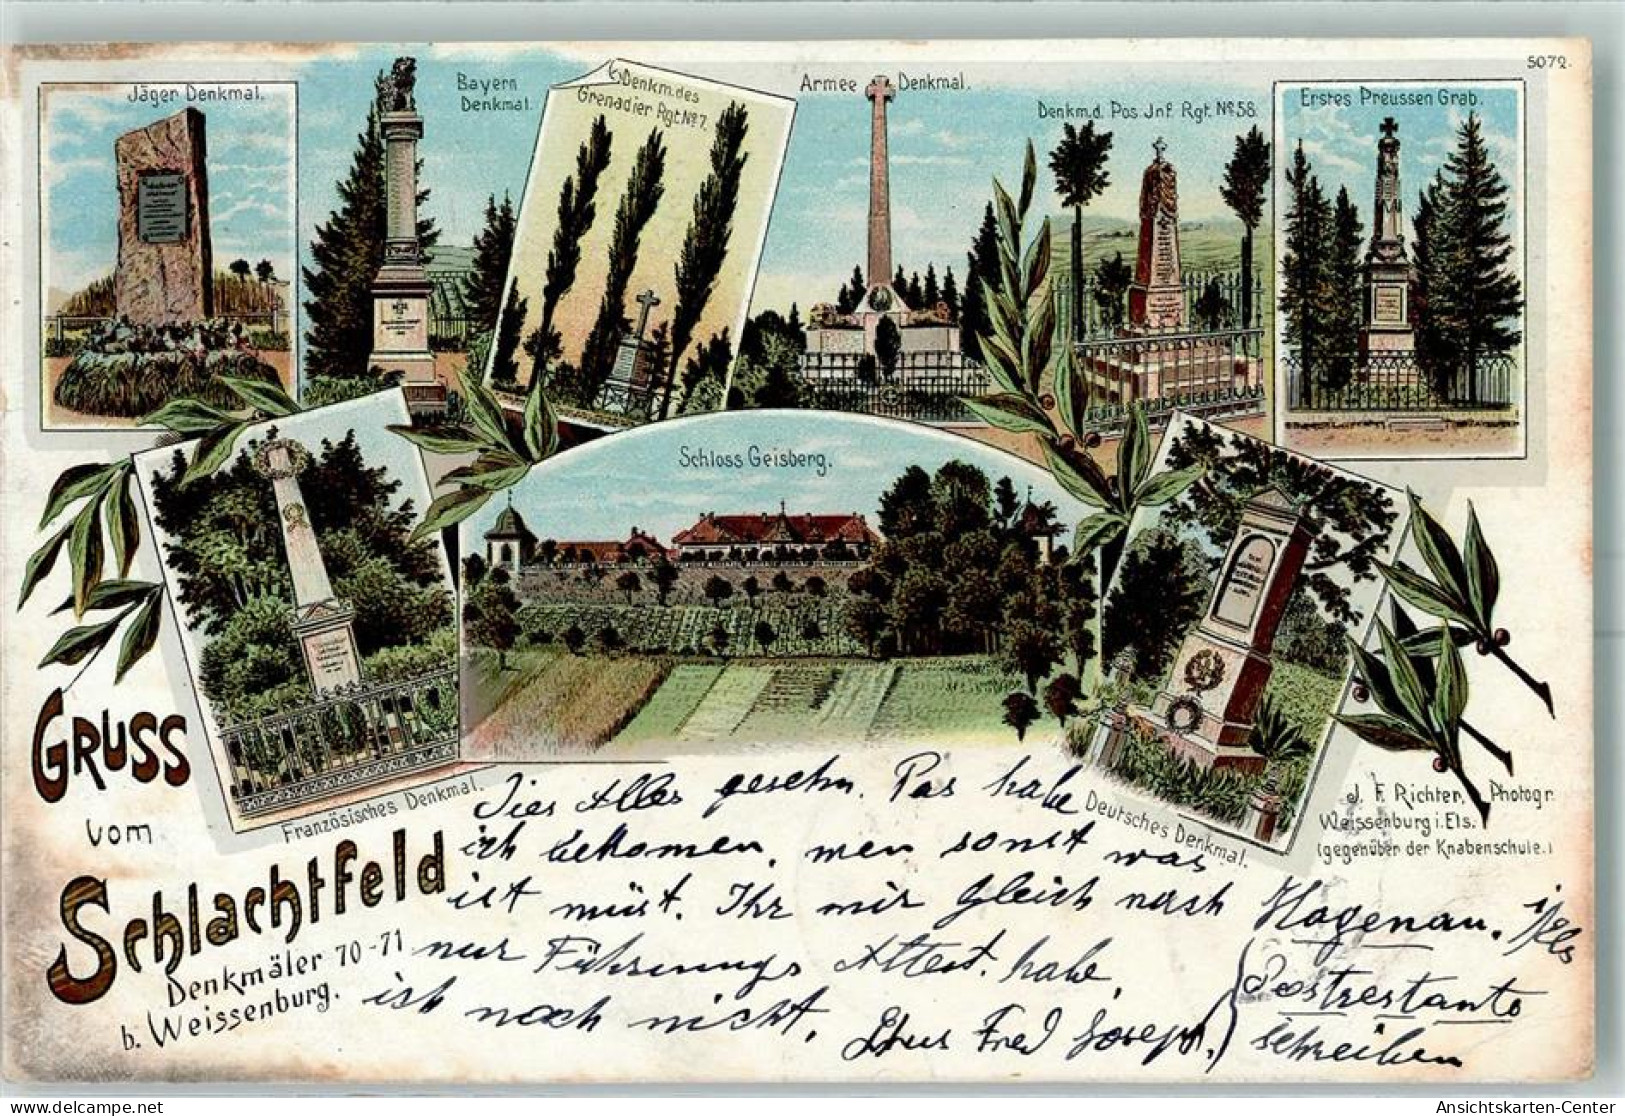 5072.
Jäger Denkmal.
Bayern
Denkmal.
Denkm. des
Grenadier Rgt. No 7.
Armee Denkmal.
Denkm. d. Pos. Inf. Rgt. No 58.
Erstes Preussen Grab.
Schloss Geisberg.
Französisches Denkmal.
Deutsches Denkmal.
J. F. Richter, Photogr.
Weissenburg i. Els.
(gegenüber der Knabenschule.)
GRUSS
vom
Schlachtfeld
Denkmäler 70-71
b. Weissenburg.
Dies Alles gesehn. Pas habe
ich bekomen, wen sonst was
ist müst. Ihr mir gleich nach Hagenau. i/Els
nur Führungs Attest. habe, Postrestante
ich noch nicht. Fred Josep. schreiben
Ansichtskarten-Center